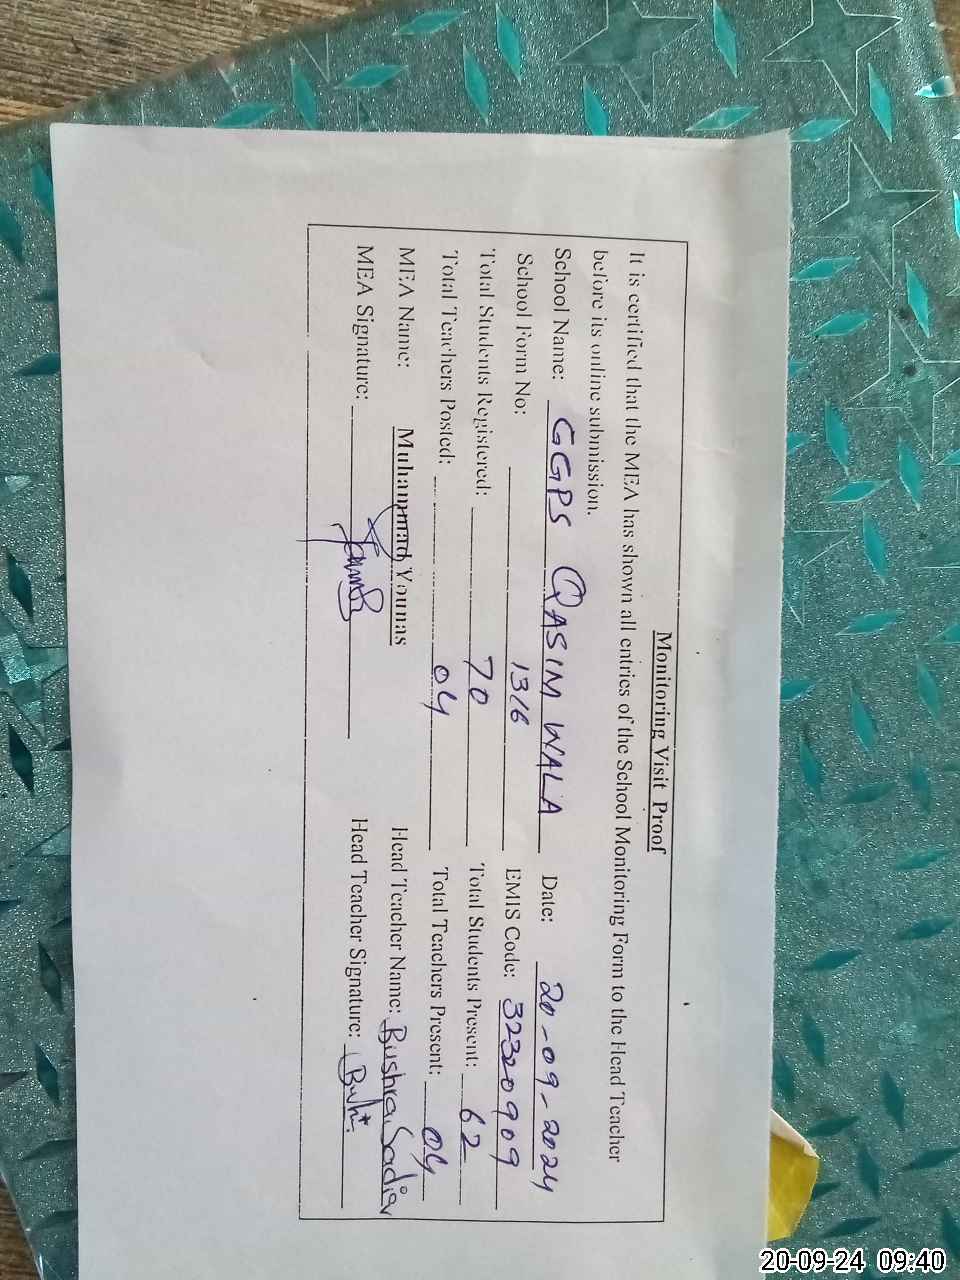 Monitoring Visit Proof
It is certified that the MEA has shown all entries of the School Monitoring Form to the Head Teacher
before its online submission.
School Name: GGPS QASIM WALA Date: 20-09-2024
School Form No: 1316 EMIS Code: 32320909
Total Students Registered: 70 Total Students Present: 62
Total Teachers Posted: 04 Total Teachers Present: 04
MEA Name: Muhammad Younas Head Teacher Name: Bushra Sadia
MEA Signature: Head Teacher Signature:
20-09-24 09:40